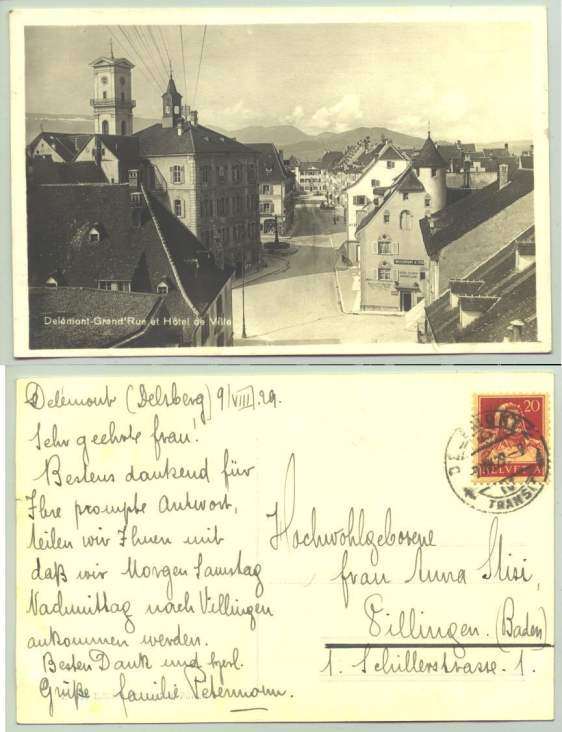 Delémont-Grand'Rue et Hôtel de Ville
Delémont (Delsberg) 9/VIII.29.
Sehr geehrte Frau!
Bestens dankend für
Ihre prompte Antwort,
teilen wir Ihnen mit
daß wir Morgen Samstag
Nachmittag nach Villingen
ankommen werden.
Besten Dank und herzl.
Grüße Familie Petermann.
20
HELVETIA
TRANSIT
Hochwohlgeborene
Frau Anna Misi,
Villingen. (Baden)
1. Schillerstrasse 1.